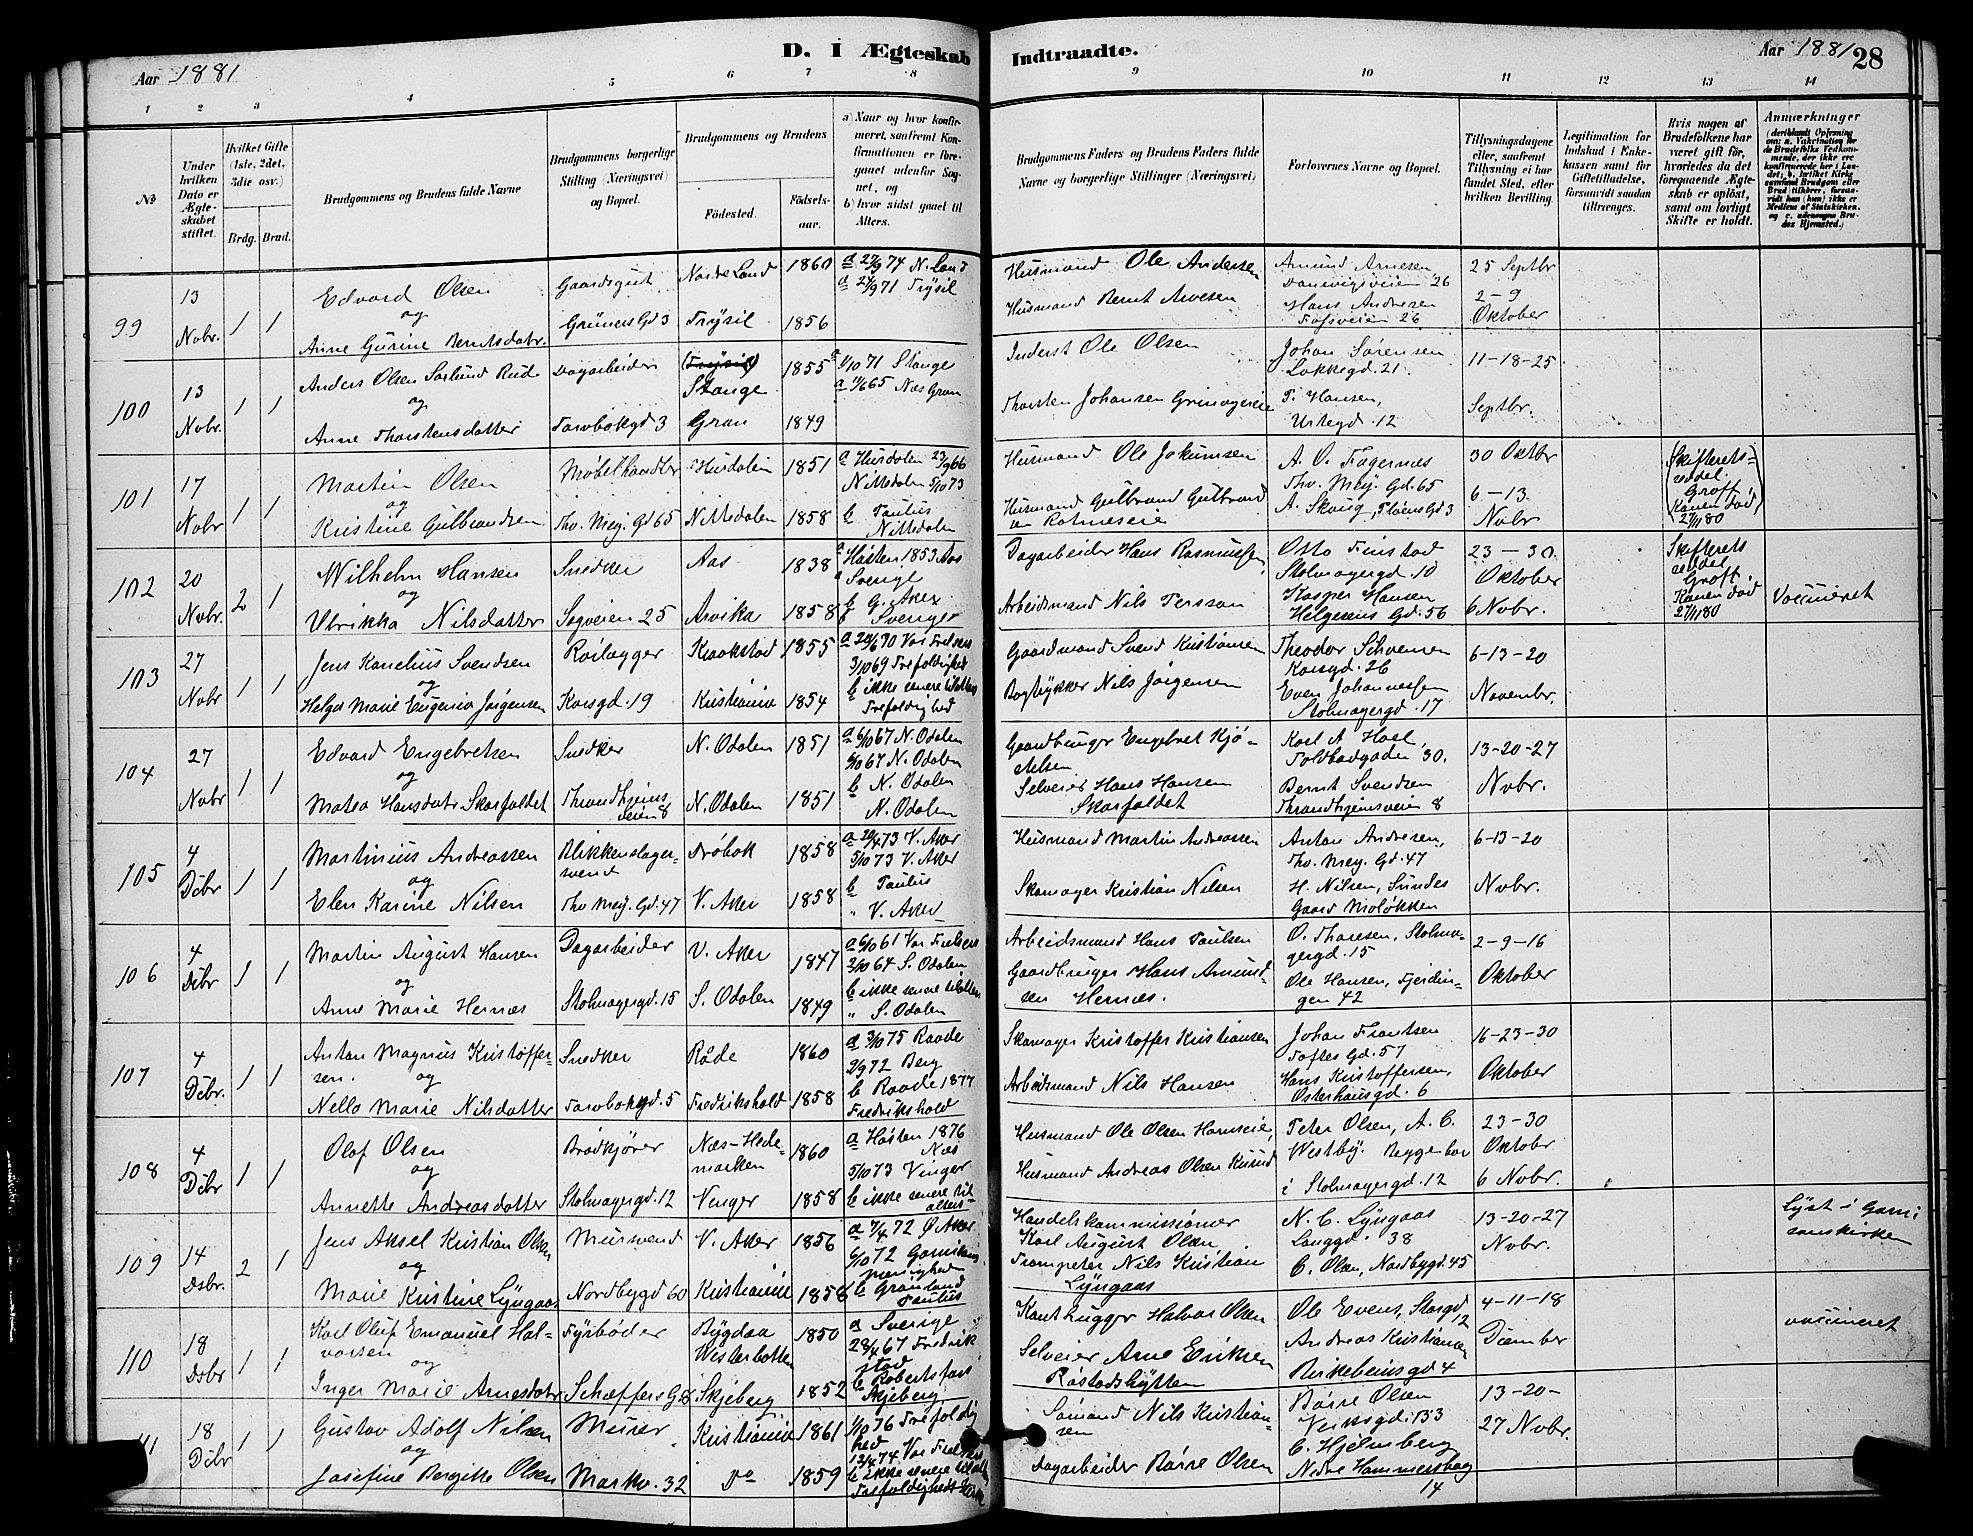 Aar 1881
D. i Ægteskab Indtraadte.
Aar 1881 28
1 2 3 4 5 6 7 8 9 10 11 12 13 14
No
Under hvilken Dato er Ægteskabet stiftet.
Hvilket Gifte (1ste, 2det, 3die osv.)
Brdg. Brud.
Brudgommens og Brudens fulde Navne
Brudgommens borgerlige Stilling (Næringsvei) og Bopæl.
Brudgommens og Brudens
Fødested.
Fødselsaar.
a) Naar og hvor konfirmeret, saafremt Konfirmationen er foregaaet udenfor Sognet, og
b) hvor sidst gaaet til Alters.
Brudgommens Faders og Brudens Faders fulde Navne og borgerlige Stillinger (Næringsvei)
Forlovernes Navne og Bopæl.
Tillysningsdagene eller, saafremt Tillysning ei har fundet Sted, efter hvilken Bevilling.
Legitimation for Indskud i Enkekassen samt for Giftetilladelse, forsaavidt saadan tiltrænges.
Hvis nogen af Brudefolkene har været gift før, hvorledes da det foregaaende Ægteskab er opløst, samt om lovligt Skifte er holdt.
Anmærkninger
99 13 Nobr. 1 1
Edvard Olsen og Anne Gurine Berntsdatr.
Gaardsgut Grüners Gd 3
Nordre Land 1860
Trysil 1856
a 27/9 74 N. Land
a 24/9 71 Trysil
Husmand Ole Andersen
Husmand Bernt Arvesen
Amund Arnesen, 26
Hans Andresen 26
25 Septbr 2-9 Oktober
100 13 Nobr. 1 1
Anders Olsen Sorlund Rud og Anne Thorstensdatter
Dagarbeider Torvbakgd 3
Stange 1855
Gran 1849
1/10 71 Stange
Næs Gran
Inderst Ole Olsen
Thorsten Johansen
Johan Sørensen Lakkegd. 21.
P. Hansen, Urtegd. 12
11-18-25 Septbr.
101 17 Nobr 1 1
Martin Olsen og Kristine Gulbrandsen
Møbelhandler Thv. Mey. Gd 65
Hurdalen 1851
Nittedalen 1858
a Hurdalen 23/9 66
Nittedalen 5/10 73
b Paulus
Nittedalen
Husmand Ole Jokumsen
Husmand Gulbrand Gulbrandsen
A. O. Fagernes Thv. Mey. Gd. 65
A. Skoug, Gd 3
30 Oktbr 6-13 Nobr
Skifteretsseddel Groft Konen død 27/11 80
102 20 Nobr. 2 1
Wilhelm Hansen og Ulrikka Nilsdatter
Snedker Sagveien 25
Aas 1838
Arvika 1858
a Høsten 1853 Aas
" Sverige
b G. Aker
" Sverige
Dagarbeider Hans Rasmussen
Arbeidsmand Nils Persson
Otto Finstad Stolmagergd. 10
Kasper Hansen Helgesens Gd. 56
23-30. Oktober 6 Nobr.
Skifterets seddel Groft Konen død 27/11 80
Vaccineret
103 27 Nobr 1 1
Jens Kornelius Svendsen og Helga Marie Eugenia Jørgensen
Rørlægger Korsgd. 19
Kraakstad 1855
Kristiania 1854
Vor Frelsers
3/10 69 Trefoldighed
b ikke senere til alters
Trefoldighed
Gaardmand Svend Kristiansen
Bogtrykker Nils Jørgensen
Theodor Korsgd. 26
Even Johannessen Stolmagergd. 17
6-13-20 November.
104 27 Nobr 1 1
Edvard Engebretsen og Matea Hansdatr Skarfoldet
Snedker Throndhjemsveien 8
N. Odalen 1851
N. Odalen 1851
a 6/10 67 N. Odalen
6/10 67 N. Odalen
b N. Odalen
N. Odalen
Gaardbruger Engebret
Selveier Hans Hansen Skarfoldet
Karl A. Hoel, Toldbodgaden 30.
Bernt Svendsen Throndhjemsveien 8
13-20-27 Nobr.
105 4 Dcbr 1 1
Martinius Andreassen og Elen Karine Nilsen
Blikkenslagersvend Thv. Mey. Gd. 47
Drøbak 1858
V. Aker 1858
a 20/4 73 V. Aker
5/10 73 V. Aker
b Paulus
" V. Aker
Husmand Martin Andreassen
Skomager Kristian Nilsen
Anton Andresen, Thv. Mey. Gd. 47
H. Nilsen, Sundes Gaard
6-13-20 Nobr.
106 4 Dcbr 1 1
Martin August Hansen og Anne Marie Hernæs
Dagarbeider Stolmagergd. 15
V. Aker 1847
S. Odalen 1849
a 6/10 61 Vor Frelsers
2/10 64 S. Odalen
b ikke senere til alters
" S. Odalen
Arbeidsmand Hans Paulsen
Gaardbruger Hans Amundsen Hernæs.
O. Thoresen, Stolmagergd. 15
Ole Hansen, Fjerdingen 42
2-9-16 Oktober
107 4 Dcbr. 1 1
Anton Magnus Kristoffersen. og Nella Marie Nilsdatter
Snedker Torvbakgd. 5
Råde 1860
Fredrikshald 1858
a 3/10 75 Raade
2/9 72 Berg
b Raade 1877
Fredrikshald
Skomager Kristoffer Kristiansen
Arbeidsmand Nils Hansen
Johan Frantsen Toftes Gd. 57
Hans Kristoffersen, Osterhausgd. 6
16-23-30 Oktober
108 4 Dcbr 1 1
Olaf Olsen og Annette Andreasdatter
Brødkjører Stolmagergd. 12
Næs-Hedemarken 1860
Vinger 1858
a Høsten 1876 Næs
5/10 73 Vinger
b ikke senere til alters
Husmand Ole Olsen
Husmand Andreas Olsen
Peter Olsen, A. C. Westby. Begge bor i Stolmagergd. 12
23-30 Oktobr 6 Nobr.
109 14 Dsbr. 2 1
Jens Aksel Kristian Olsen og Marie Kristine Lyngaas
Mursvend Nordbygd 60
V. Aker 1856
Kristiania 1858
a 7/4 72 Ø. Aker
6/10 72 Garnisons menighed
b Grønland
Paulus
Handelskommissionær Karl August Olsen
Trompeter Nils Kristian Lyngaas
N. C. Lyngaas Langgd. 38
C. Olsen, Nordbygd. 45
13-20-27 Nobr.
Lyst i Garnisonskirken
110 18 Dsbr 1 1
Karl Oluf Emanuel Halvorsen og Inger Marie Arnesdatr
Fyrbøder Schæffers Gd
Bygdaa Westerbotten 1850
Skjeberg 1852
a Sverige
28/4 67 Fredrikstad
b Robertsfors
Skjeberg
Halvar Olsen
Selveier Arne Eriksen
Ole Evens, Storgd 12
Andreas Kristiansen Birkebeinsgd 4
4-11-18
vaccineret
111 18 Dcbr 1 1
Gustav Adolf Nilsen og Josefine Bergitte Olsen
Murer Markv. 32
Kristiania 1861
Do 1859
1/10 76 Trefoldighed
Vor Frelsers
b ikke senere til alters
Trefoldigheds Kirke
Sømand Nils Kristiansen
Dagarbeider Børre Olsen
Børre Olsen 133
C. Hjelmberg Nedre Hammersborg 14
13-20-27 Nobr.